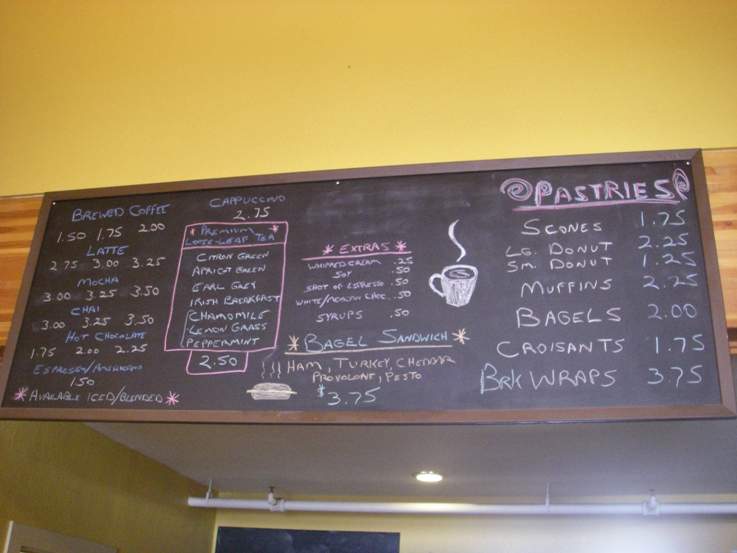 BREWED COFFEE
1.50 1.75 2.00
LATTE
2.75 3.00 3.25
MOCHA
3.00 3.25 3.50
CHAI
3.00 3.25 3.50
HOT CHOCOLATE
1.75 2.00 2.25
1.50
*AVAILABLE ICED/BLENDED*
CAPPUCCINO
2.75
* PREMIUM *
LOOSE-LEAF TEA
CITRON GREEN
APRICOT GREEN
EARL GREY
IRISH BREAKFAST
CHAMOMILE
LEMON GRASS
PEPPERMINT
2.50
* EXTRAS *
WHIPPED CREAM .25
SOY .50
SHOT OF ESPRESSO .50
.50
SYRUPS .50
*BAGEL SANDWICH*
HAM, TURKEY, CHEDDAR
PROVOLONE, PESTO
$3.75
PASTRIES
SCONES 1.75
LG. DONUT 2.25
SM. DONUT 1.25
MUFFINS 2.25
BAGELS 2.00
CROISANTS 1.75
BRK WRAPS 3.75